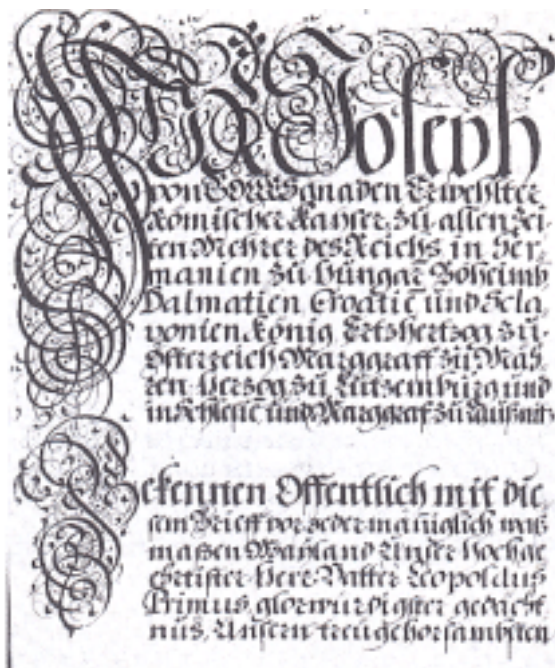 WIR Joseph
von GOTTES gnaden Erwehlter
Römischer Kayser, zu allen Zei
ten Mehrer des Reichs, in Ger
manien zu Hungarn Boheimb
Dalmatien, Croatie und Scla
vonien König, Ertzhertzog zu
Österreich Marggraff zu Mäh
ren Hertzog zu Lützemburg und
in Schlesie und Marggraf zu Laußnitz
Bekennen Offentlich mit die
sem Brieff vor jedermäniglich was
massen Weyland Unser Hochge
ehrtister Herr Vatter Leopoldus
Primus, glorwürdigster gedächt
nus, Unsern treu gehorsambsten